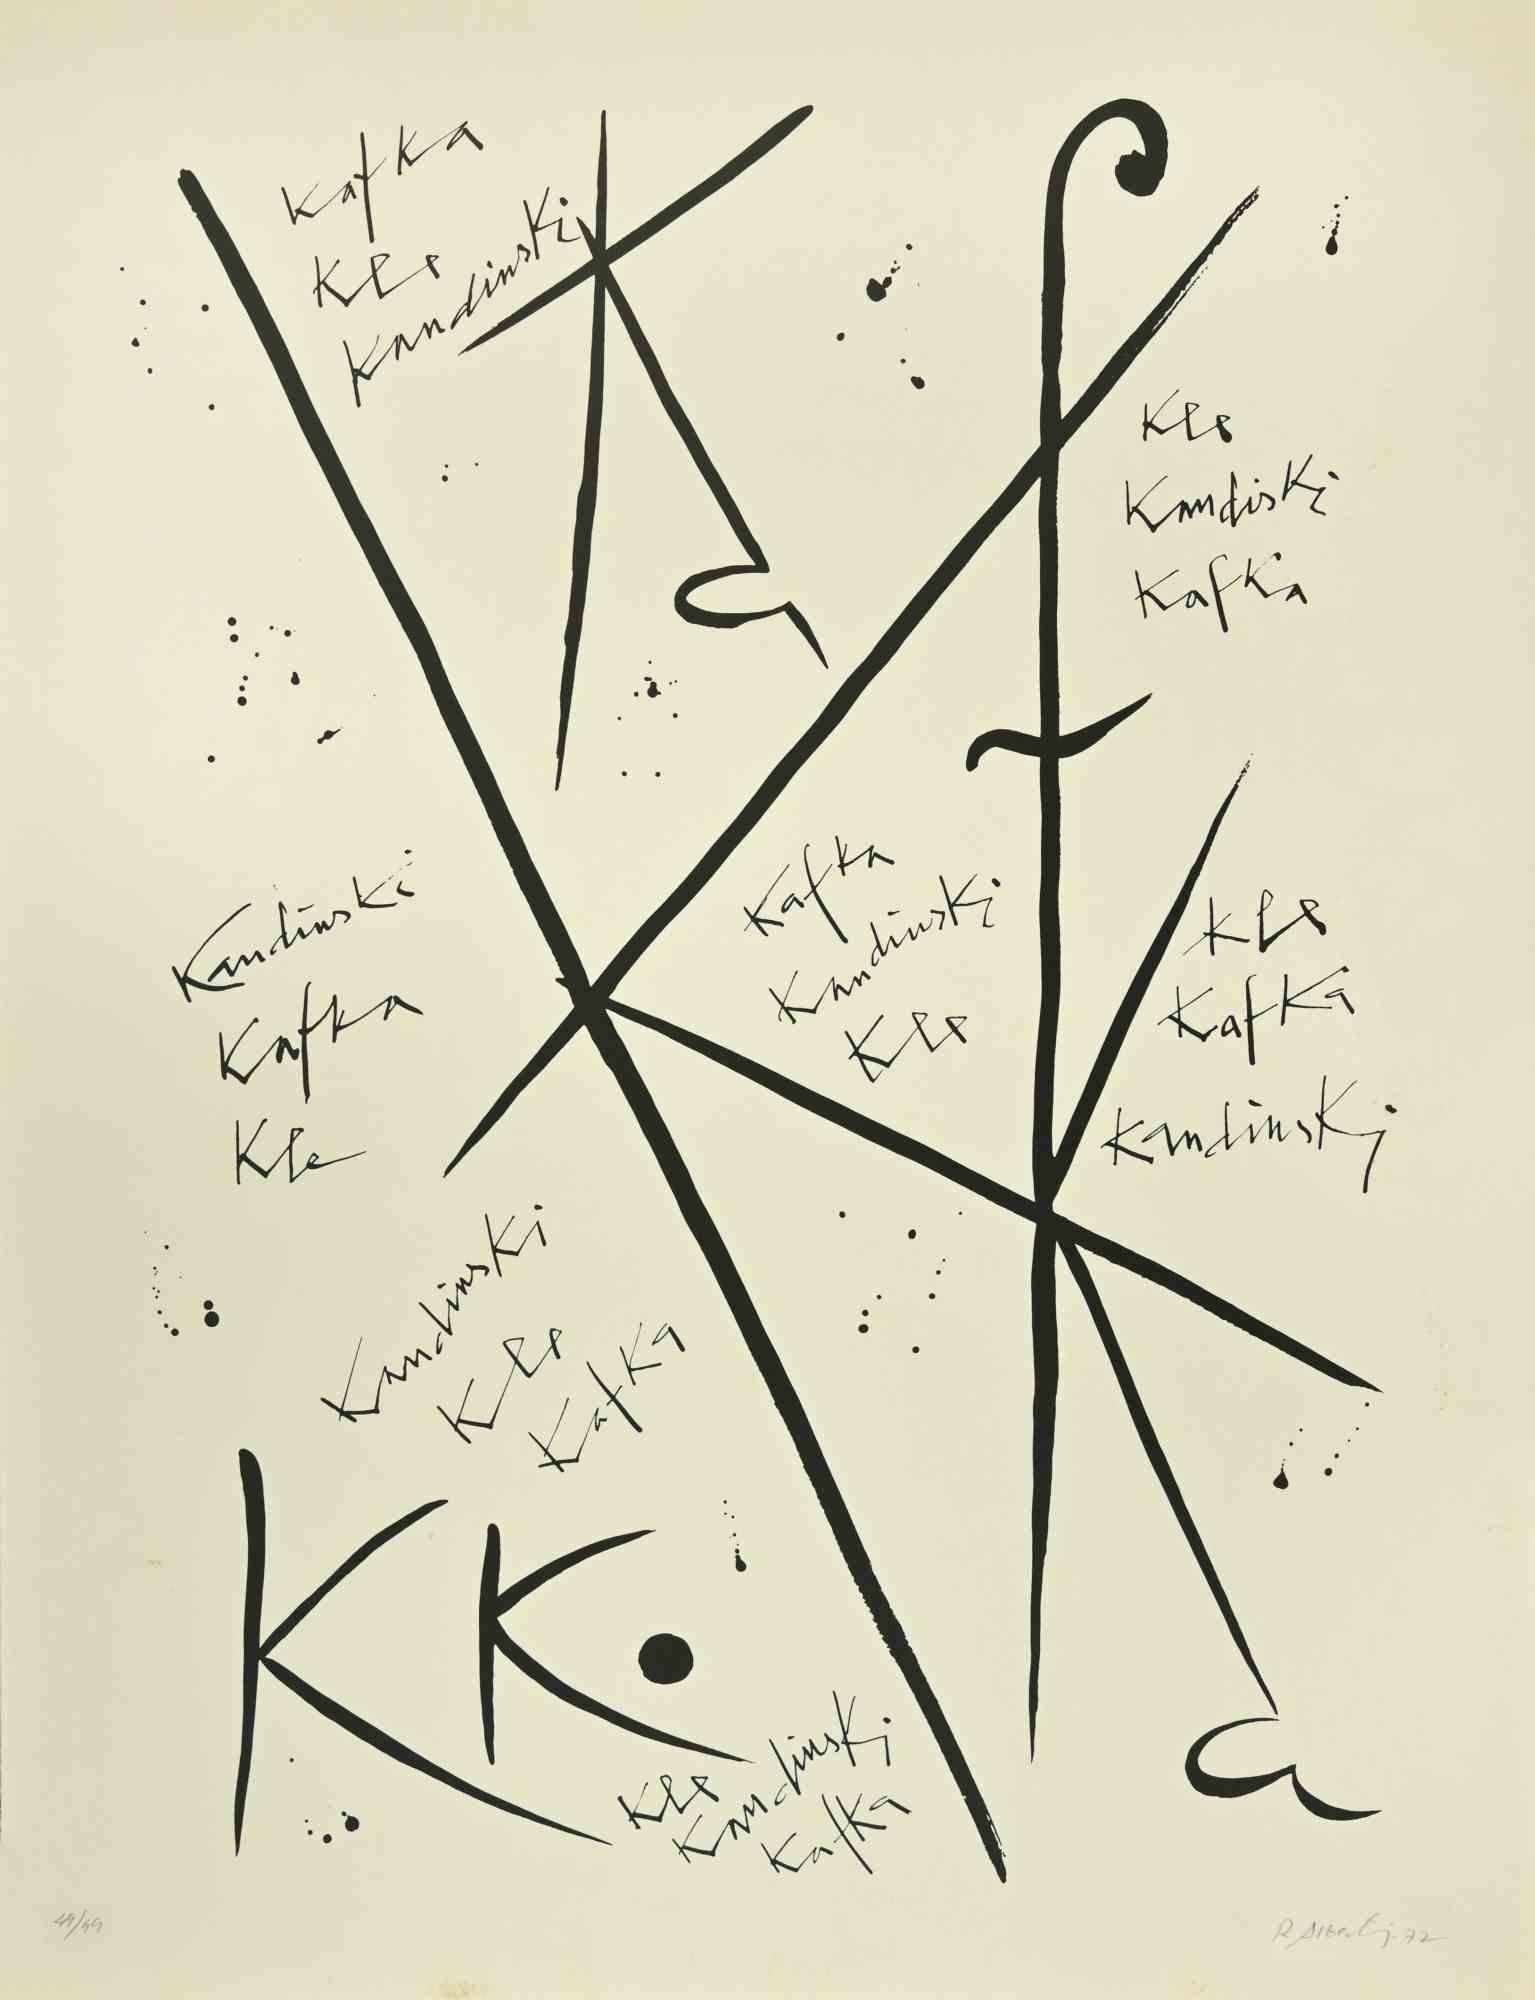 Kafka
Kle
Kandinski
Kle
Kandiski
Kafka
Kandinski
Kafka
Kle
Kafka
Kandinski
Kle
Kle
Kafka
Kandinski
Kandinski
Kle
Kafka
Kafka
K K
Kle
Kandinski
Kafka
49/49
R. Alberti, 72